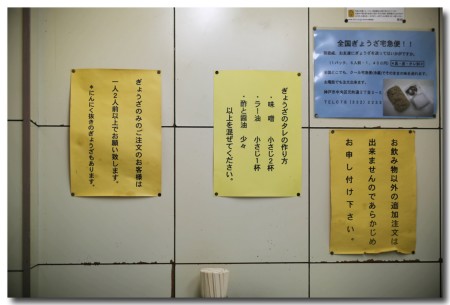 ぎょうざのみのご注文のお客様は
一人2人前以上でお願い致します。
＊にんにく抜きのぎょうざもあります。
ぎょうざのタレの作り方
・味噌 小さじ2杯
・ラー油 小さじ1杯
・酢と醤油 少々
以上を混ぜてください。
全国ぎょうざ宅急便！！
お飲み物以外の追加注文は
出来ませんのであらかじめ
お申し付け下さい。